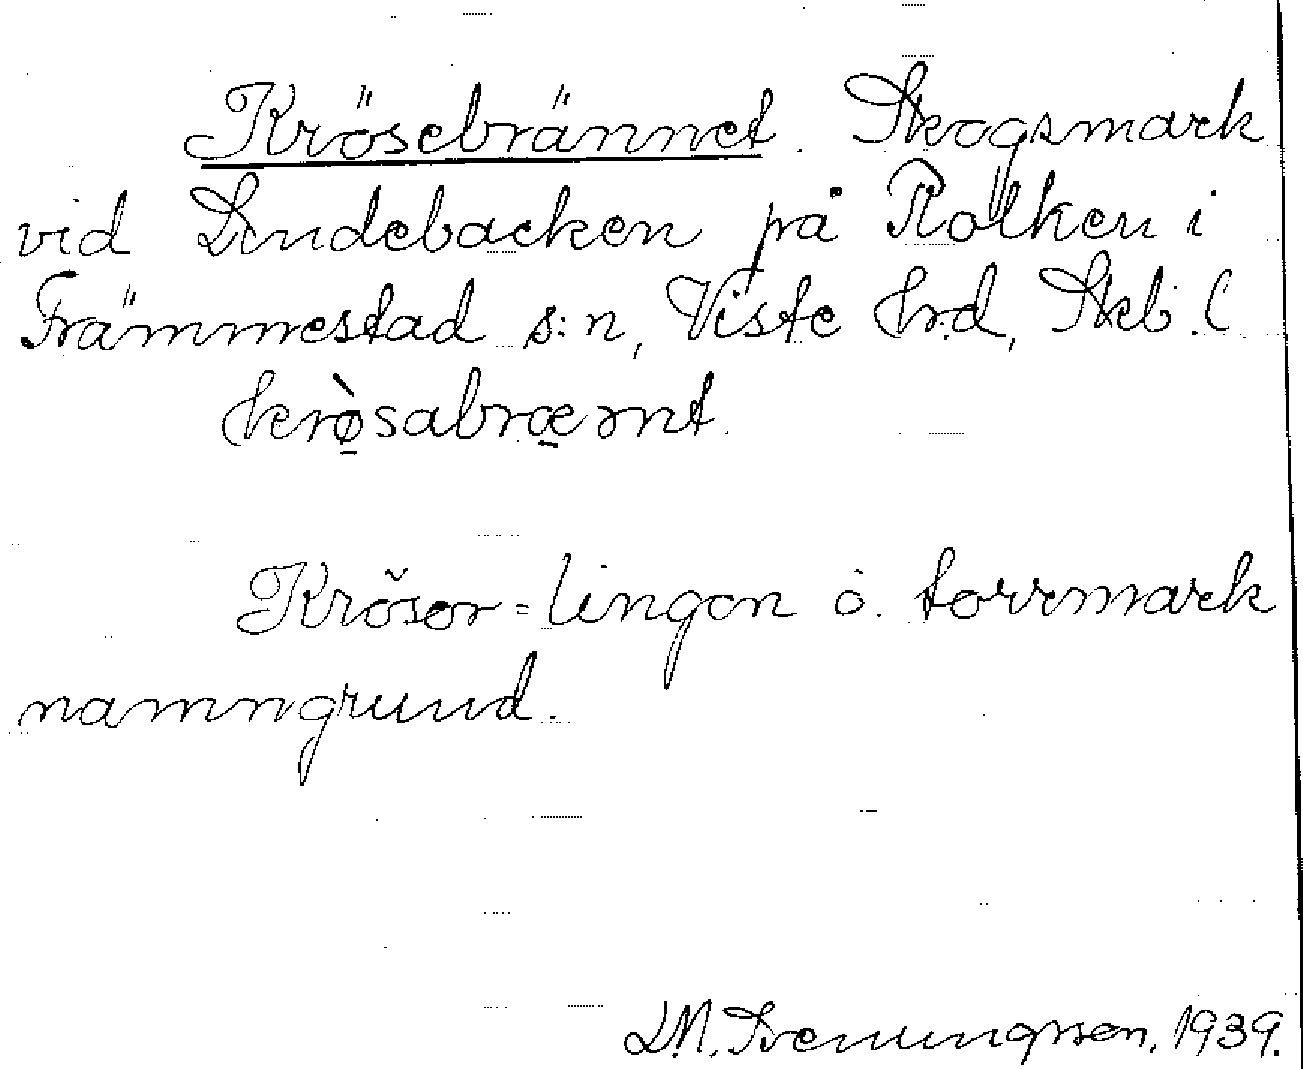 Krösebrännet. Skogsmark
vid Lindebacken på Rolken i
Främmestad s:n, Viste Hrd, Skb. l
krø̀sabræ̱nt.
Krösor = lingon o. torrmark
namngrund.
L.M. Svenungsson, 1939.